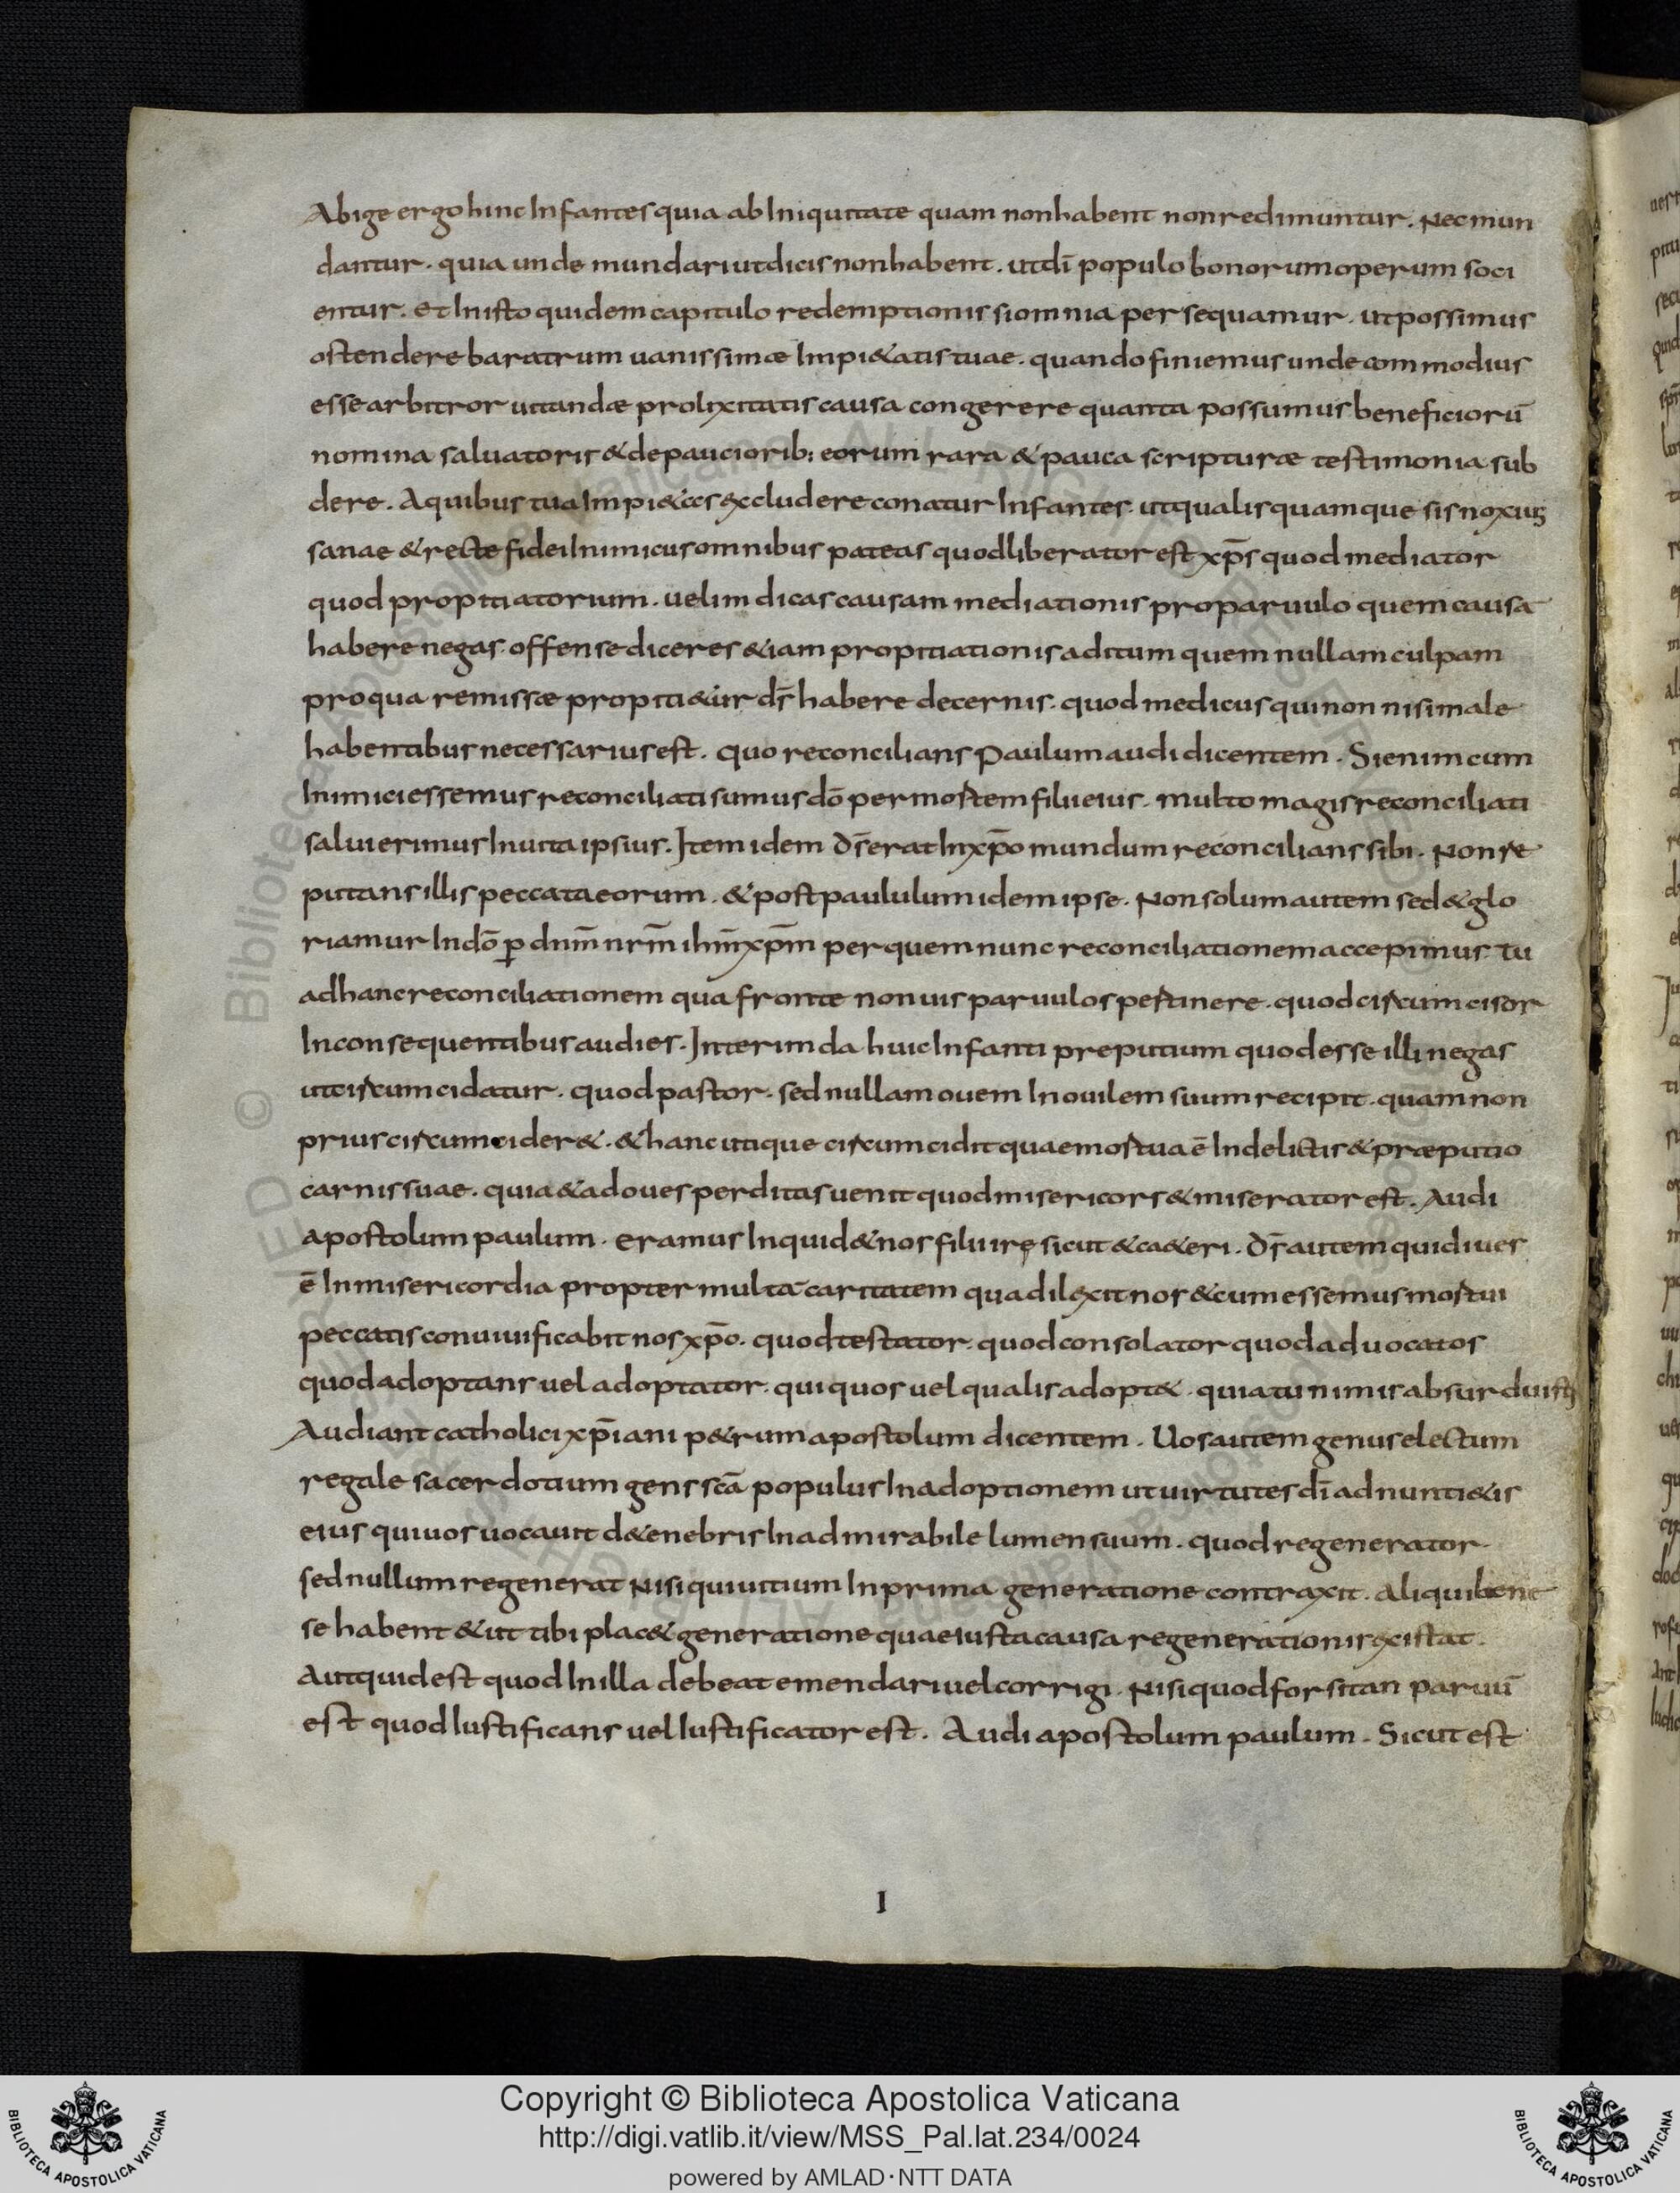 Abige ergo hinc Infantes quia ab Iniquitate quam non habent non redimuntur. Nec mun
dantur. quia unde mundari ut dicis non habent. ut dī populo bonorum operum soci
entur. et In isto quidem capitulo redemptionis si omnia persequamur. ut possimus
ostendere baratrum uanissimæ Impi&atis tuae. quando finiemus unde commodius
esse arbitror uitandæ prolixitatis causa congerere quanta possumus beneficiorū
nomina saluatoris & de pauciorib; eorum rara & pauca scripturæ testimonia sub
dere. A quibus tua Impi&as excludere conatur Infantes. ut qualis quamque sis noxius
sanae & recte fidei Inimicus omnibus pateas quod liberator est xp̄s quod mediator
quod propitiatorum. uelim dicas causam mediationis pro paruulo quem causā
habere negas. offense diceres &iam propitiationis aditum quem nullam culpam
pro qua remissæ propiti&ur d̄s habere decernis. quod medicus qui non nisi male
habentibus necessarius est. quo reconcilians Paulum audi dicentem. Si enim cum
Inimici essemus reconciliati sumus dō per mortem filii eius. multo magis reconciliati
salui erimus In uita ipsius. Item idem d̄s erat In xp̄o mundum reconcilians sibi. Non re
putans illis peccata eorum. & post paululum idem ipse. Non solum autem sed & glo
riamur In dō ꝑ dnm̄ nrm̄ ihm̄ xp̄m per quem nunc reconciliationem accepimus. tu
ad hanc reconciliationem qua fronte non uis paruulos pertinere. quod circumcisor
In consequentibus audies. Interim da huic Infanti preputium quod esse illi negas
ut circumcidatur. quod pastor. sed nullam ouem In ouilem suum recipit. quam non
prius circumcider&. & hanc utique circumcidit quae mortua ē In delictis & præputio
carnis suae. quia & ad oues perditas uenit quod misericors & miserator est. Audi
apostolum paulum. eramus Inquid & nos filii irę sicut & c&eri. d̄s autem qui diues
ē In misericordia propter multā caritatem qua dilexit nos & cum essemus mortui
peccatis conuiuificabit nos xp̄o. quod testator. quod consolator quod aduocatos
quod adoptans uel adoptator. qui quos uel qualis adopt&. quia tu nimis absurdu
Audiant catholici xp̄iani p&rum apostolum dicentem. Uos autem genus electum
regale sacerdotium gens scā populus In adoptionem ut uirtutes dī adnunti&is
eius qui uos uocauit d& enebris In admirabile lumen suum. quod regenerator.
sed nullum regenerat Nisi qui uitium In prima generatione contraxit. Aliqui bene
se habent & ut tibi plac& generatione quae iusta causa regenerationis existat.
Aut quid est quod In illa debeat emendari uel corrigi. Nisi quod forsitan paruū
est quod Iustificans uel Iustificator est. Audi apostolum paulum. Sicut est
I
Copyright © Biblioteca Apostolica Vaticana
http://digi.vatlib.it/view/MSS_Pal.lat.234/0024
powered by AMLAD·NTT DATA
BIBLIOTECA APOSTOLICA VATICANA
BIBLIOTECA APOSTOLICA VATICANA